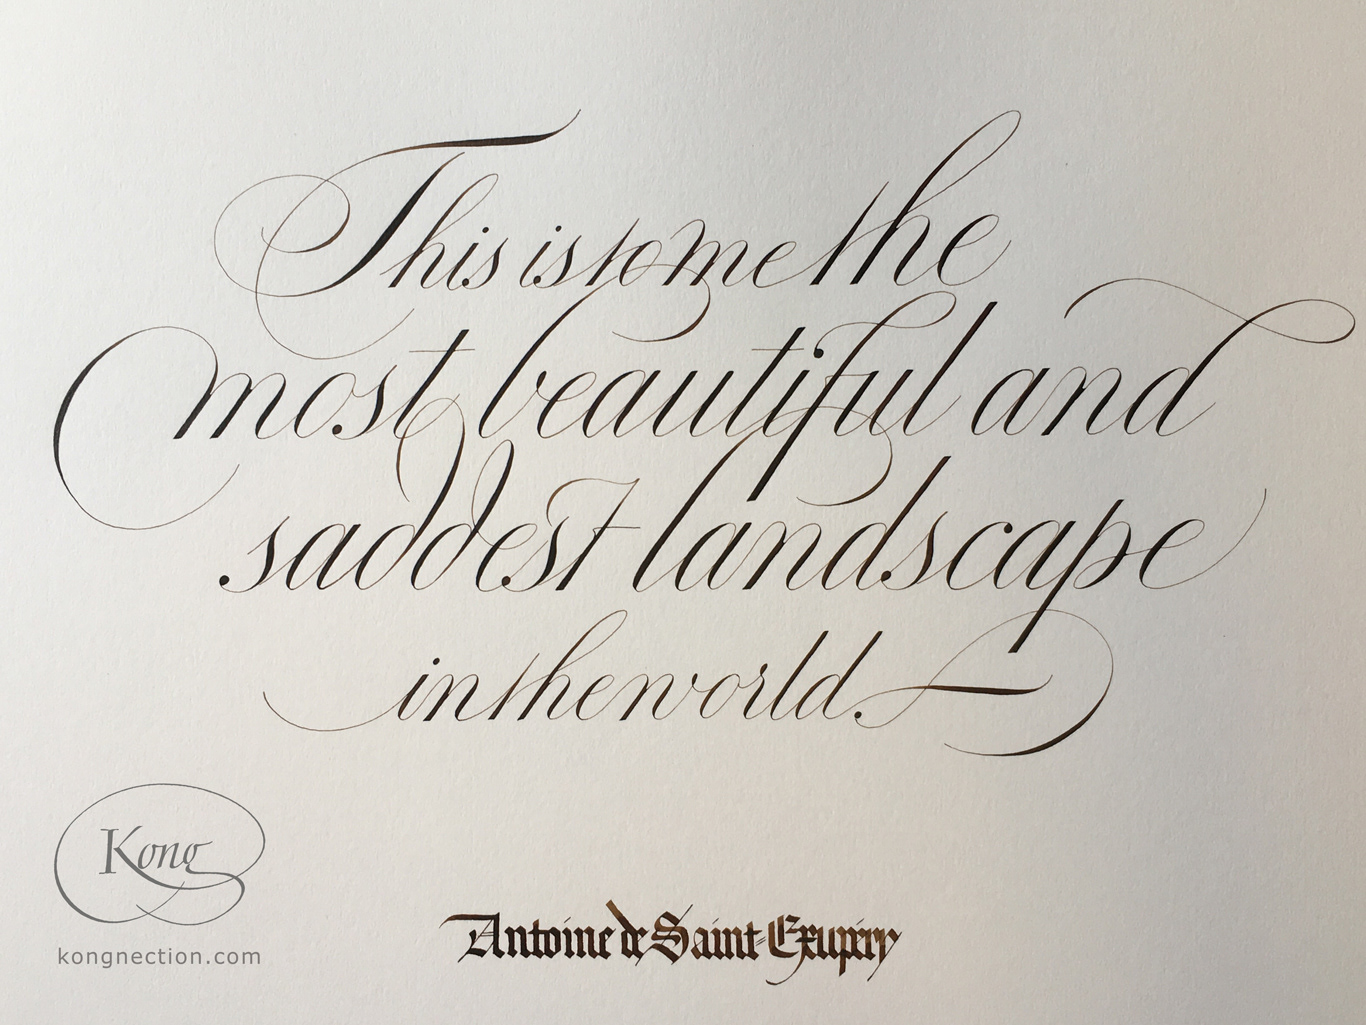 This is to me the
most beautiful and
saddest landscape
in the world.
Kong
kongnection.com
Antoine de Saint-Exupéry